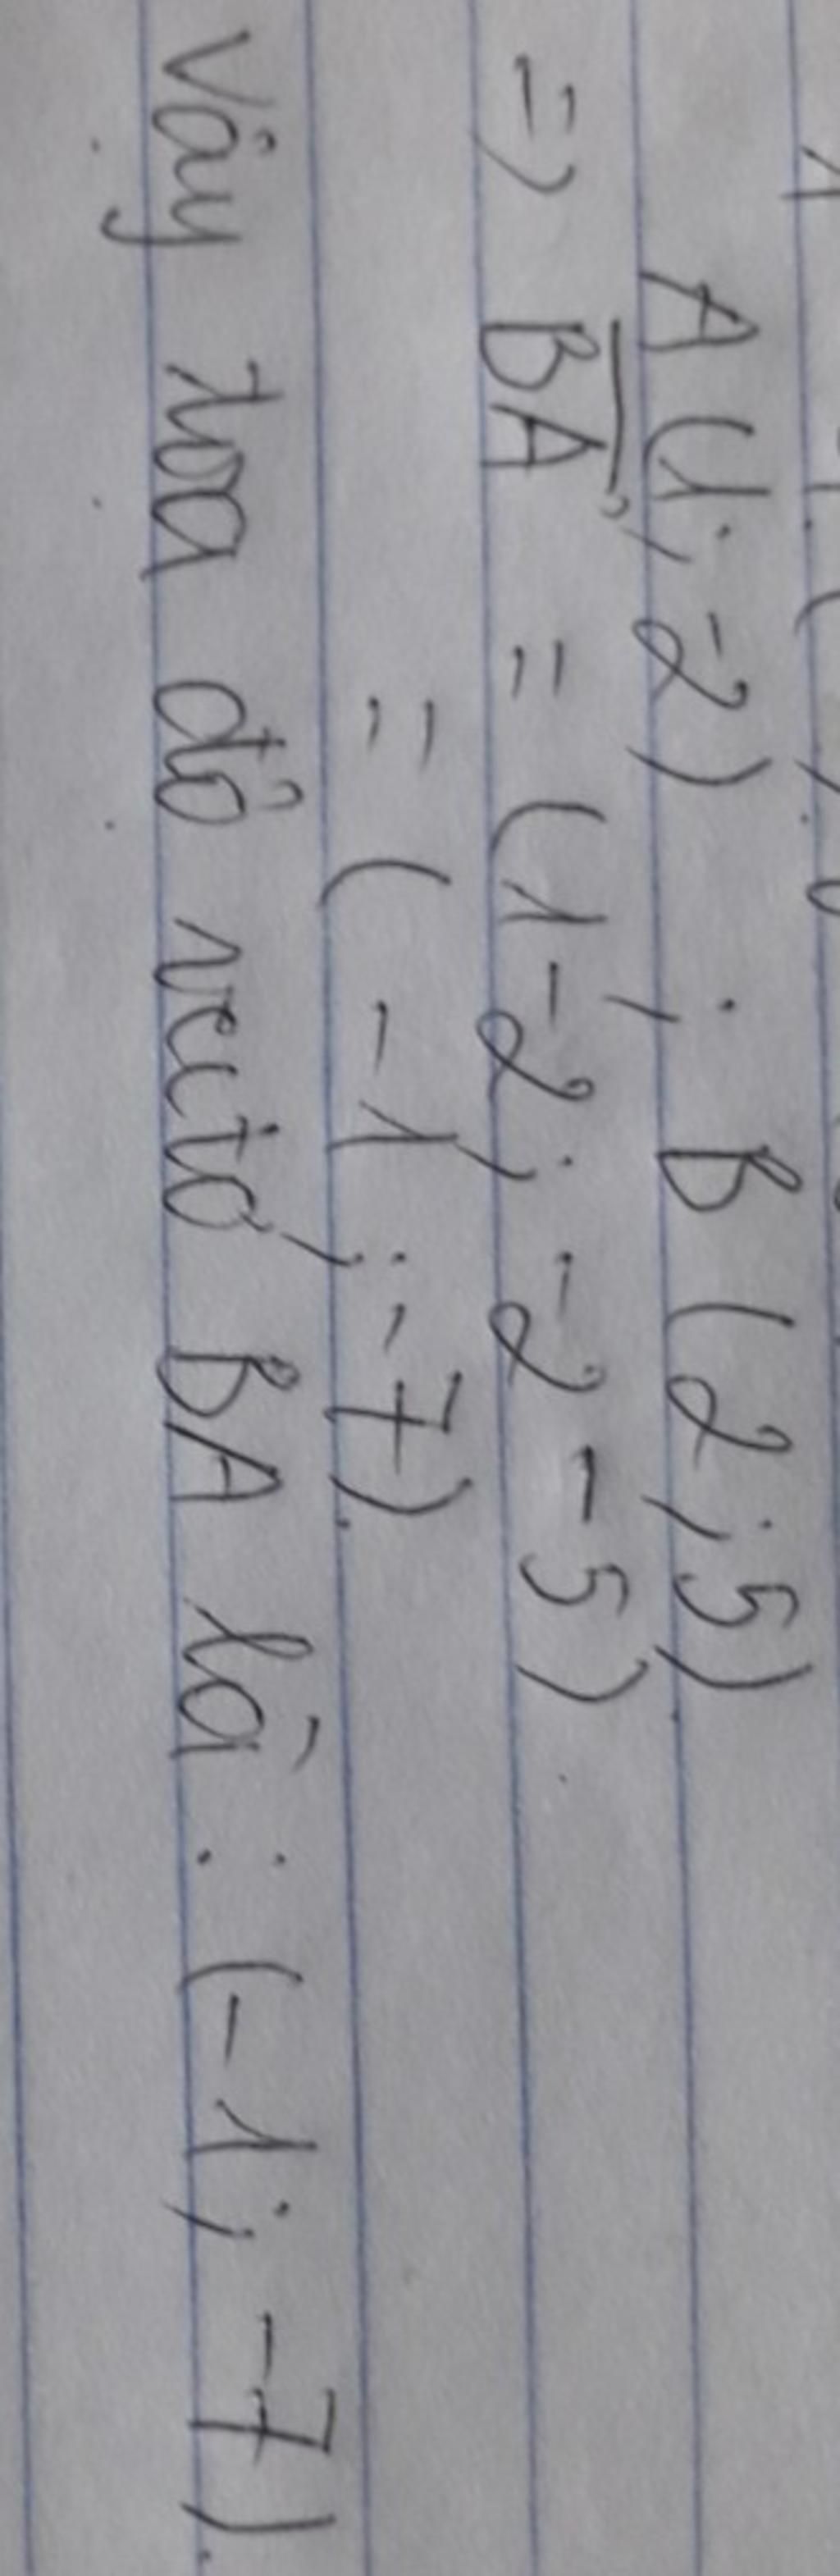 A (1; -2) ; B (2; 5).
=> BA = (1-2; -2-5).
= (-1; -7).
Vậy tọa độ vectơ BA là : (-1; -7).